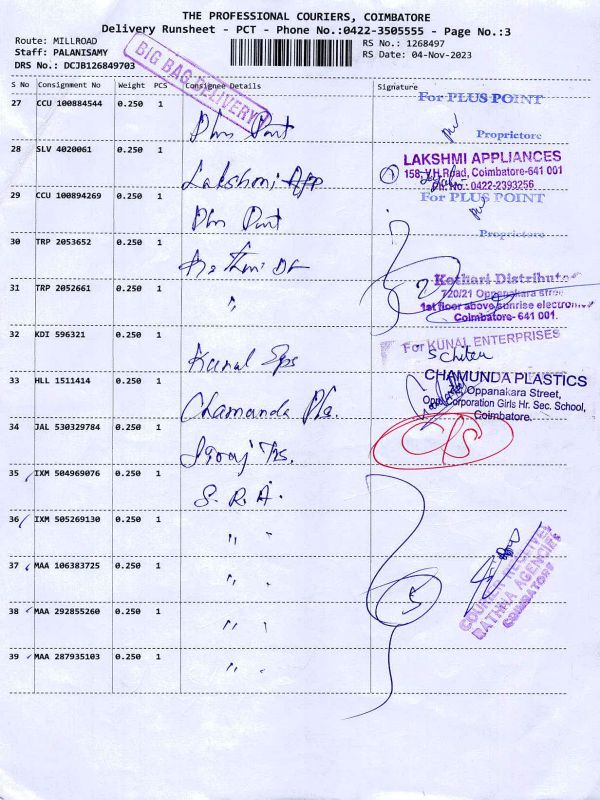 THE PROFESSIONAL COURIERS, COIMBATORE
Delivery Runsheet - PCT - Phone No.:0422-3505555 - Page No.:3
Route: MILLROAD
RS No.: 1268497
Staff: PALANISAMY
RS Date: 04-Nov-2023
DRS No.: DCJB126849703
BIG BAG DELIVERY
S No Consignment No Weight PCS Consignee Details Signature
27 CCU 100884544 0.250 1
For PLUS POINT
Proprietore
28 SLV 4020061 0.250 1 Lakshmi App
1
LAKSHMI APPLIANCES
158, V.H.Road, Coimbatore-641 001
Ph: No.: 0422-2393256
29 CCU 100894269 0.250 1
For PLUS POINT
Proprietore
30 TRP 2053652 0.250 1
31 TRP 2052661 0.250 1 "
2
Kothari Distributo
720/21 Oppanakara stree
1st floor above sunrise electronics
Coimbatore- 641 001.
32 KDI 596321 0.250 1 Kunal Eps
For KUNAL ENTERPRISES
33 HLL 1511414 0.250 1 Chamunda Pla.
CHAMUNDA PLASTICS
Oppanakara Street,
Opp. Corporation Girls Hr. Sec. School,
Coimbatore.
34 JAL 530329784 0.250 1
35 IXM 504969076 0.250 1 S. R. A.
36 IXM 505269130 0.250 1 " "
37 MAA 106383725 0.250 1 " "
38 MAA 292855260 0.250 1 " "
39 MAA 287935103 0.250 1 " "
5
COURIER RECEIVED
BATHRA AGENCIES
COIMBATORE